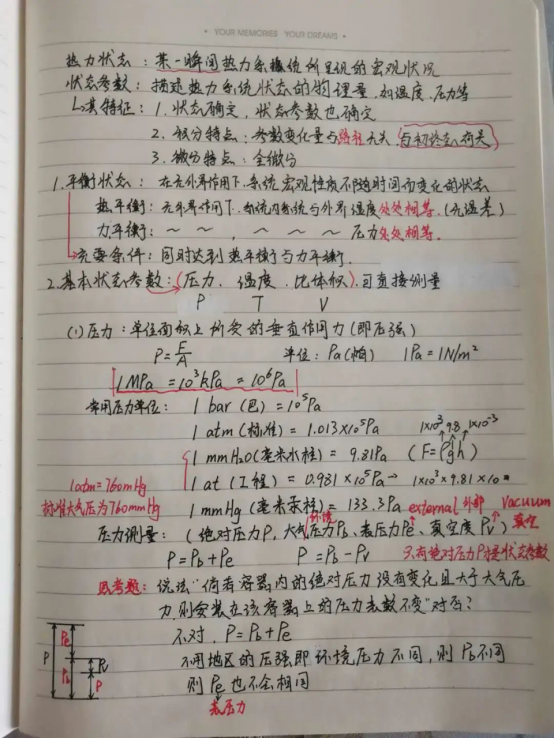 YOUR MEMORIES YOUR DREAMS
热力状态：某一瞬间热力系统所呈现的宏观状况
状态参数：描述热力系统状态的物理量，如温度、压力等
其特征：1. 状态确定，状态参数也确定
2. 积分特点：参数变化量与路径无关，与初终态有关
3. 微分特点：全微分
1. 平衡状态：在无外界作用下，系统宏观性质不随时间而变化的状态
热平衡：无外界作用下，系统内系统与外界温度处处相等（无温差）
力平衡：～～，～～～ 压力处处相等．
充要条件：同时达到热平衡与力平衡．
2. 基本状态参数：（压力、温度、比体积）可直接测量
P T V
(1) 压力：单位面积上所受的垂直作用力（即压强）
P=F/A 单位：Pa(帕) 1Pa=1N/m²
1MPa=10³kPa=10⁶Pa
常用压力单位：1 bar (巴)=10⁵Pa
1 atm (标准)=1.013×10⁵Pa 1×10³ 9.8 1×10⁻³
1 mmH₂O(毫米水柱)=9.81Pa (F=ρgh)
1atm=760mmHg 1 at (工程)=0.981×10⁵Pa→1×10³×9.81×10
标准大气压为760mmHg 1 mmHg (毫米汞柱)=133.3Pa external 外部 vacuum 真空
压力测量：（绝对压力P、大气压力Pb、表压力Pe、真空度Pv） 环境
P=Pb+Pe P=Pb-Pv 只有绝对压力P是状态参数
思考题：说法“倘若容器内的绝对压力没有变化且大于大气压
力，则安装在该容器上的压力表数不变”对否？
不对，P=Pb+Pe
不同地区的压强即环境压力不同，则Pb不同
则Pe也不会相同
表压力
P Pe Pb Pv P